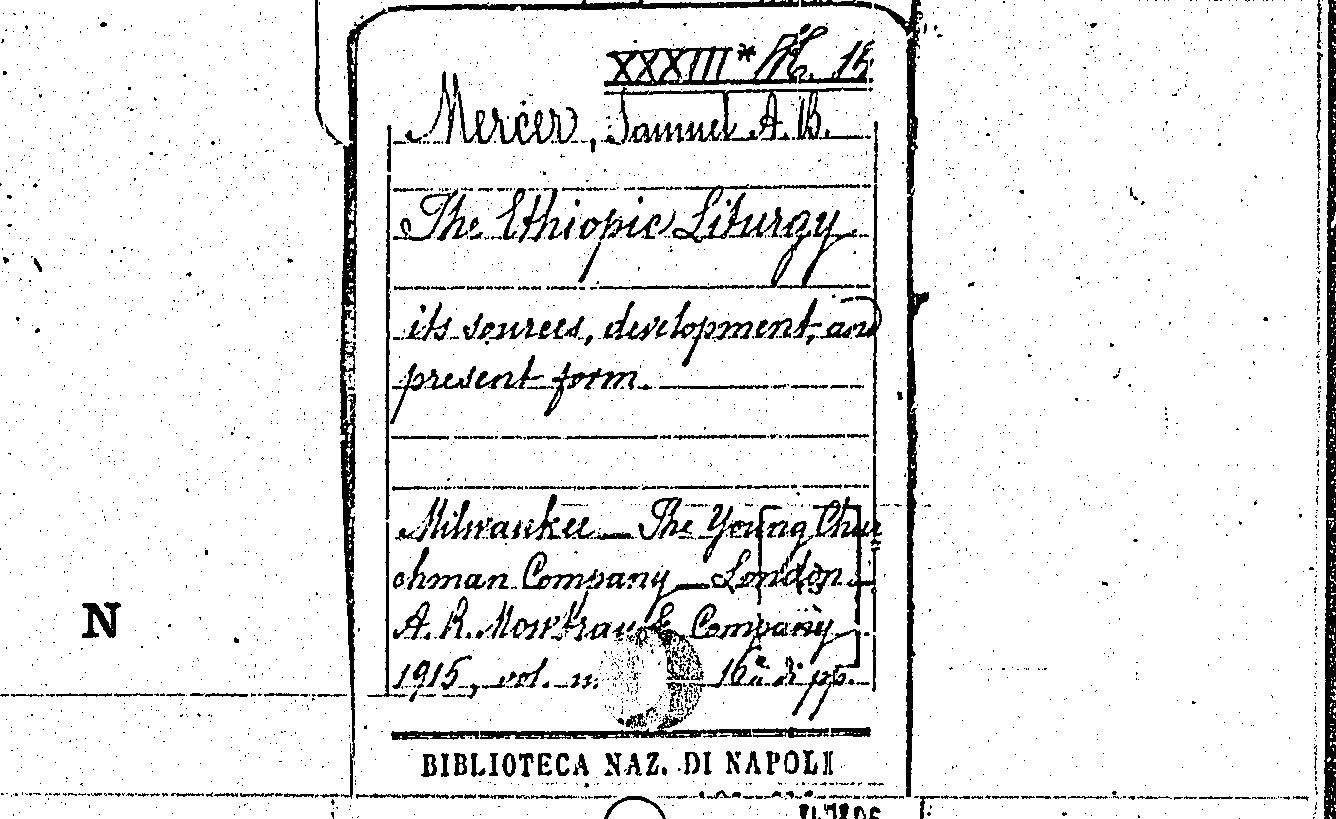 Mercer, Samuel A. B.
The Ethiopic Liturgy
its sources, development, and
present form.
Milwaukee — The Young Chur
chman Company — London
A. R. Mowbray & Company
1915, vol. 16° di pp.
N
BIBLIOTECA NAZ. DI NAPOLI